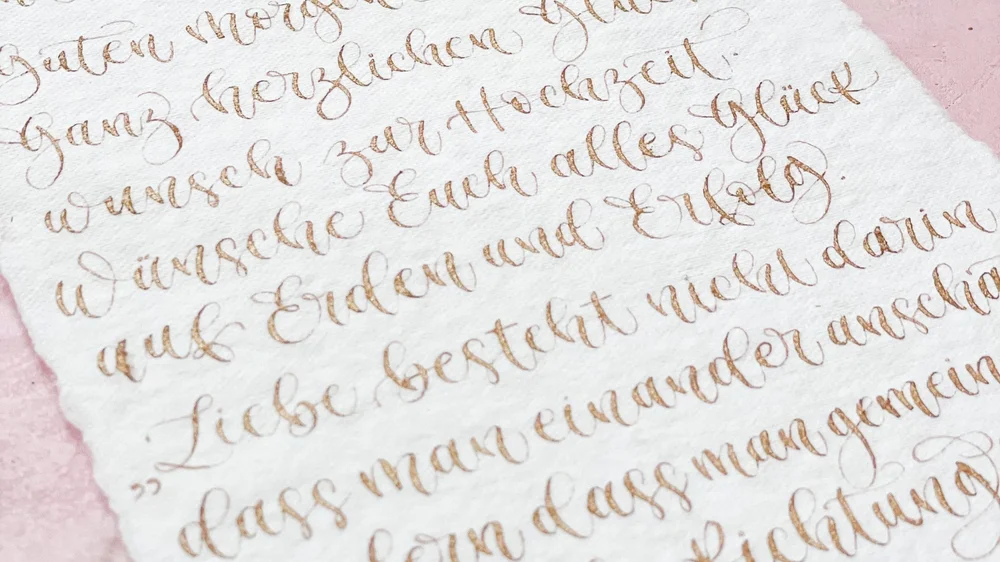 Guten morgen
Ganz herzlichen Glück
wunsch zur Hochzeit.
Wünsche Euch alles Glück
auf Erden und Erfolg.
„Liebe besteht nicht darin
dass man einander anscha
dern dass man gemein
Richtung